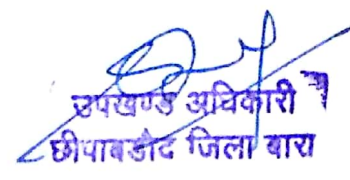 उपखण्ड अधिकारी
छीपाबडौद जिला बारा